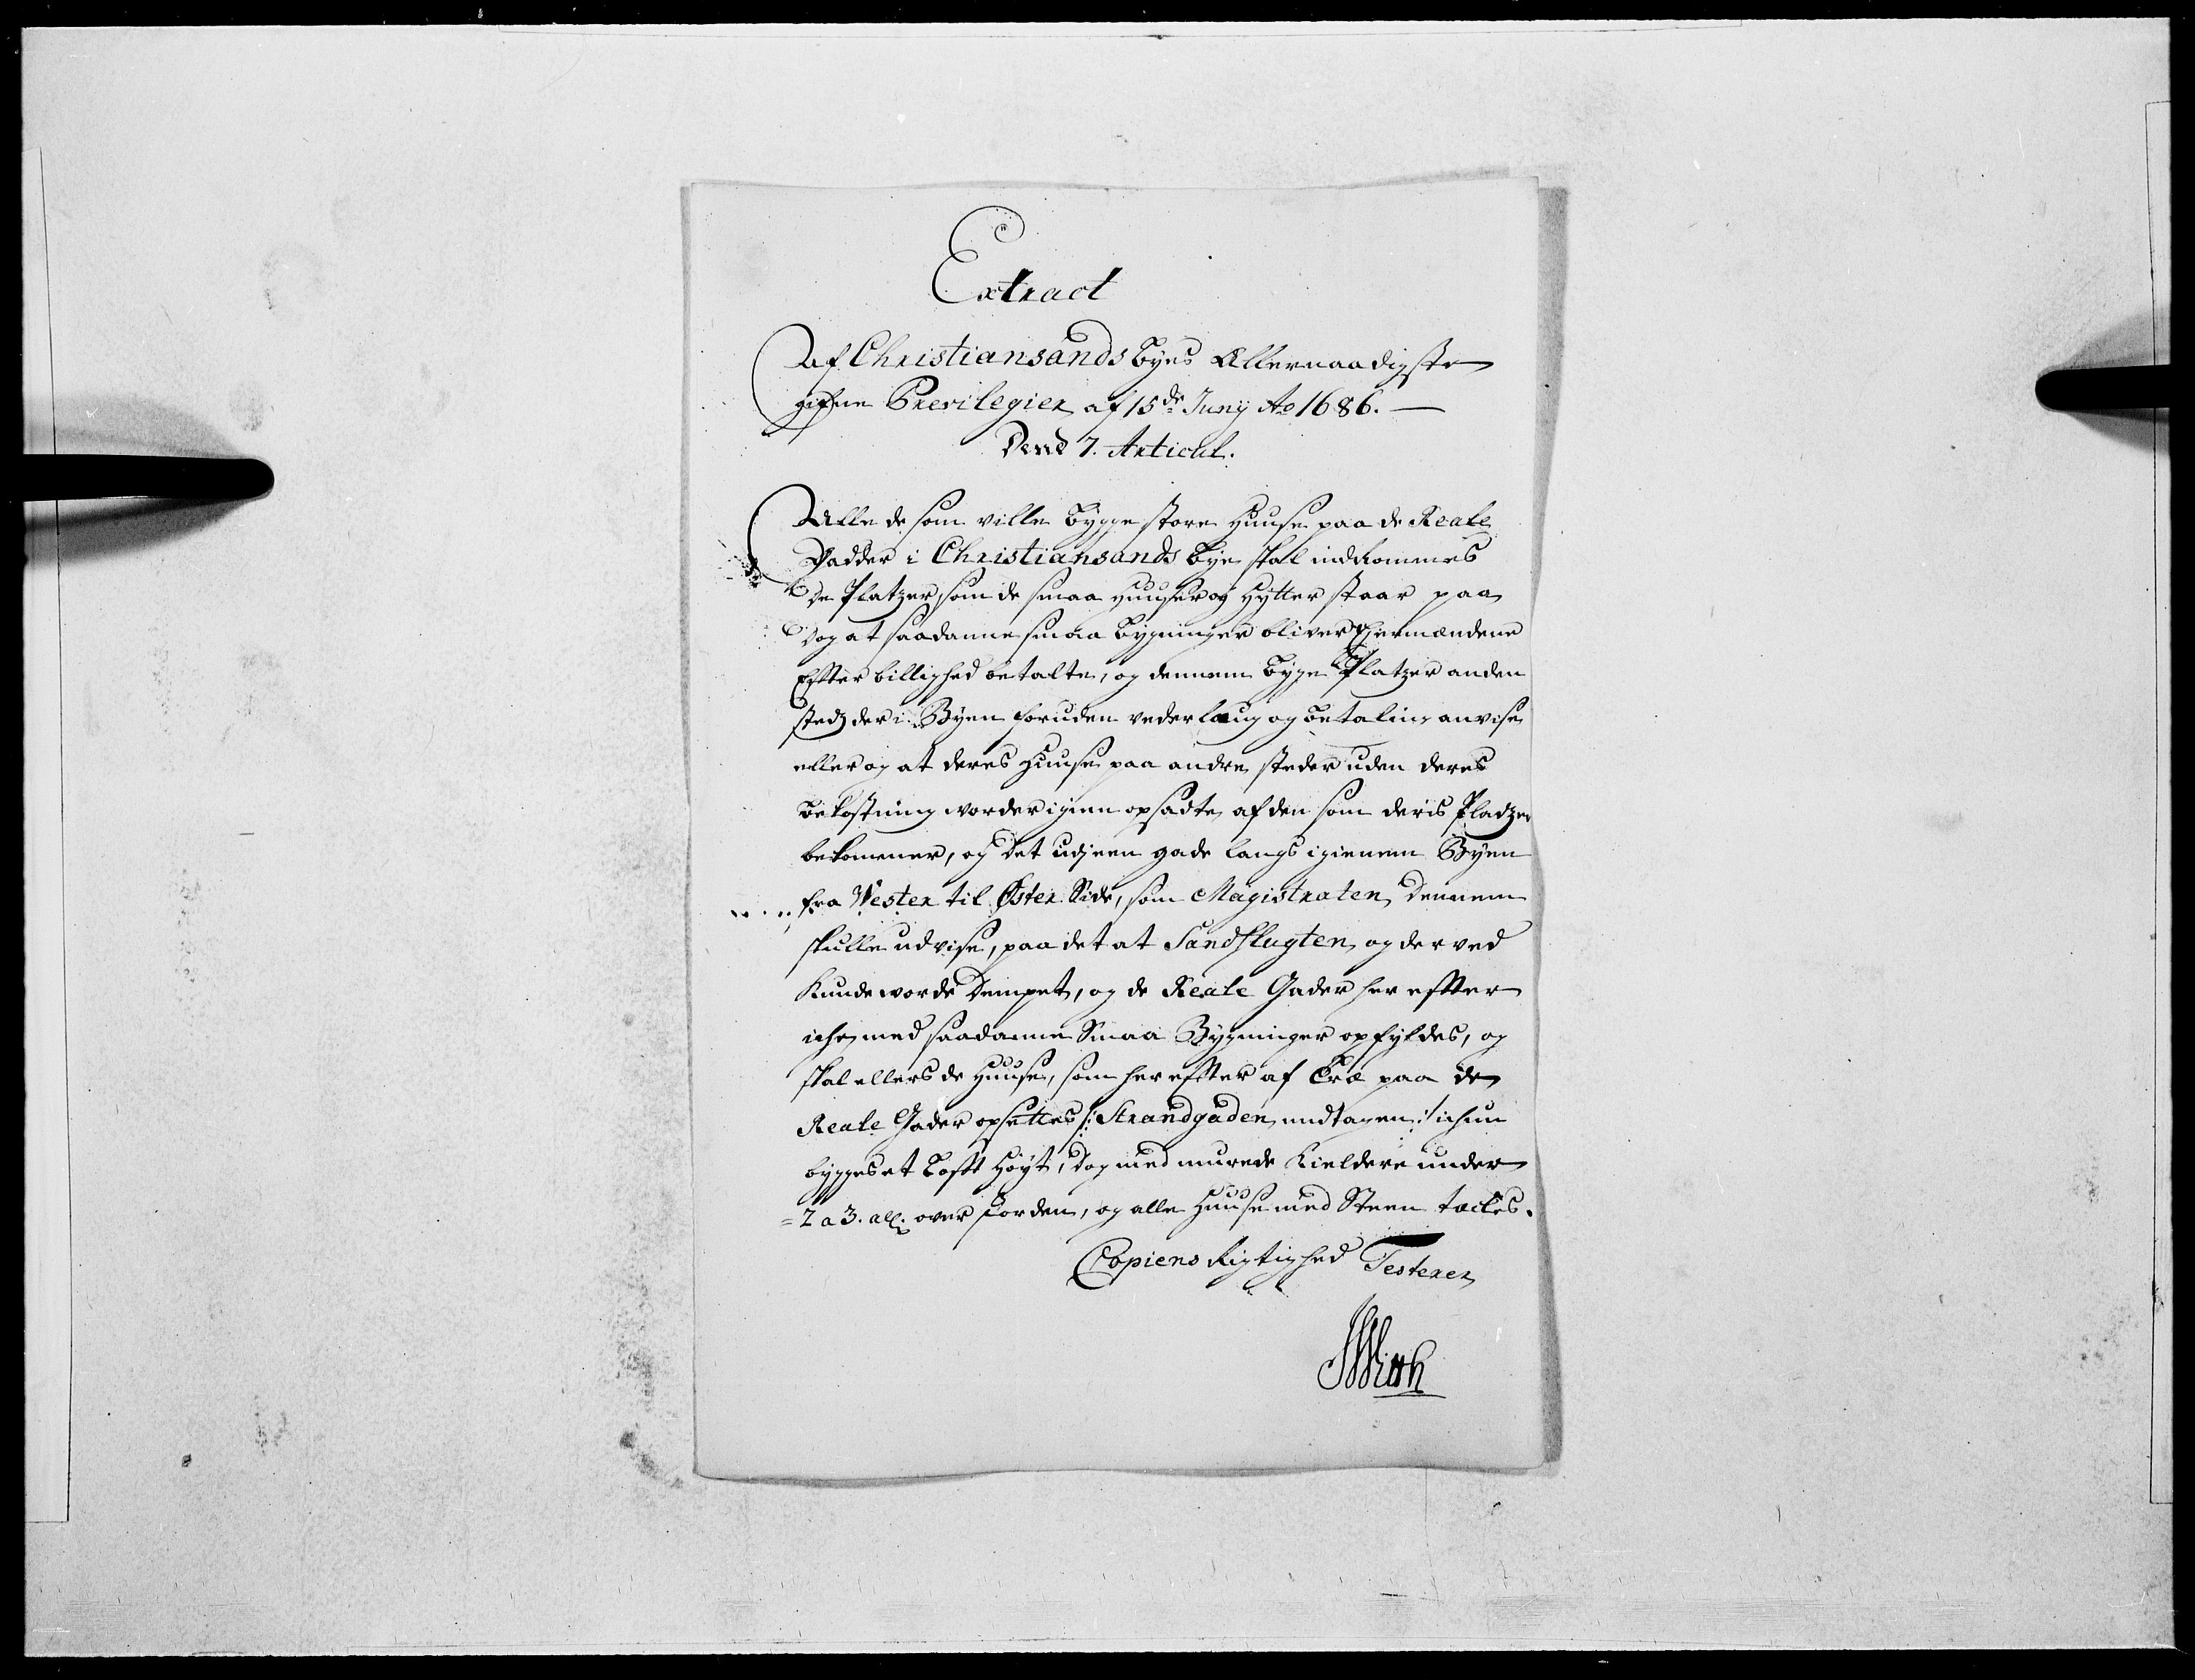 Extract
Af Christiansands Byes Allernaadigste
gifne Previlegier af 15de Juny Ao 1686.
Dend 7. Articul.
Alle de som ville bygge store Huuse paa de Reale
Gadder i Christiansands Bye skal indrommes
de Platzer, som de smaa Huuser og Hytter staar paa,
dog at saadanne smaa bygninger bliver Eiermændene
Efter billighed betalte, og dennem bygge Platzer anden
stedz der i Byen foruden vederlaug og betaling anvise
eller og at deres Huuse paa andre steder uden deres
bekostning vorder igien opsadte af den som deris Pladzer
bekommer, og det udj een gade langs igienem Byen
fra Vester til Øster Side, som Magistraten dennem
skulle udvise, paa det at Sandflugten og der ved
kunde vorde dempet, og de Reale Gader her effter
iche med saadanne Smaa Bygninger opfyldes, og
skal ellers de Huuse, som her effter af Træ paa de
Reale Gader opsettes /: Strandgaden undtagen :/ ichun
bygges et Lofft Høyt, dog med murede Kieldere under
2 a 3. all. over Jorden, og alle Huuse med Steen tackes.
Copiens Rigtighed Testerer